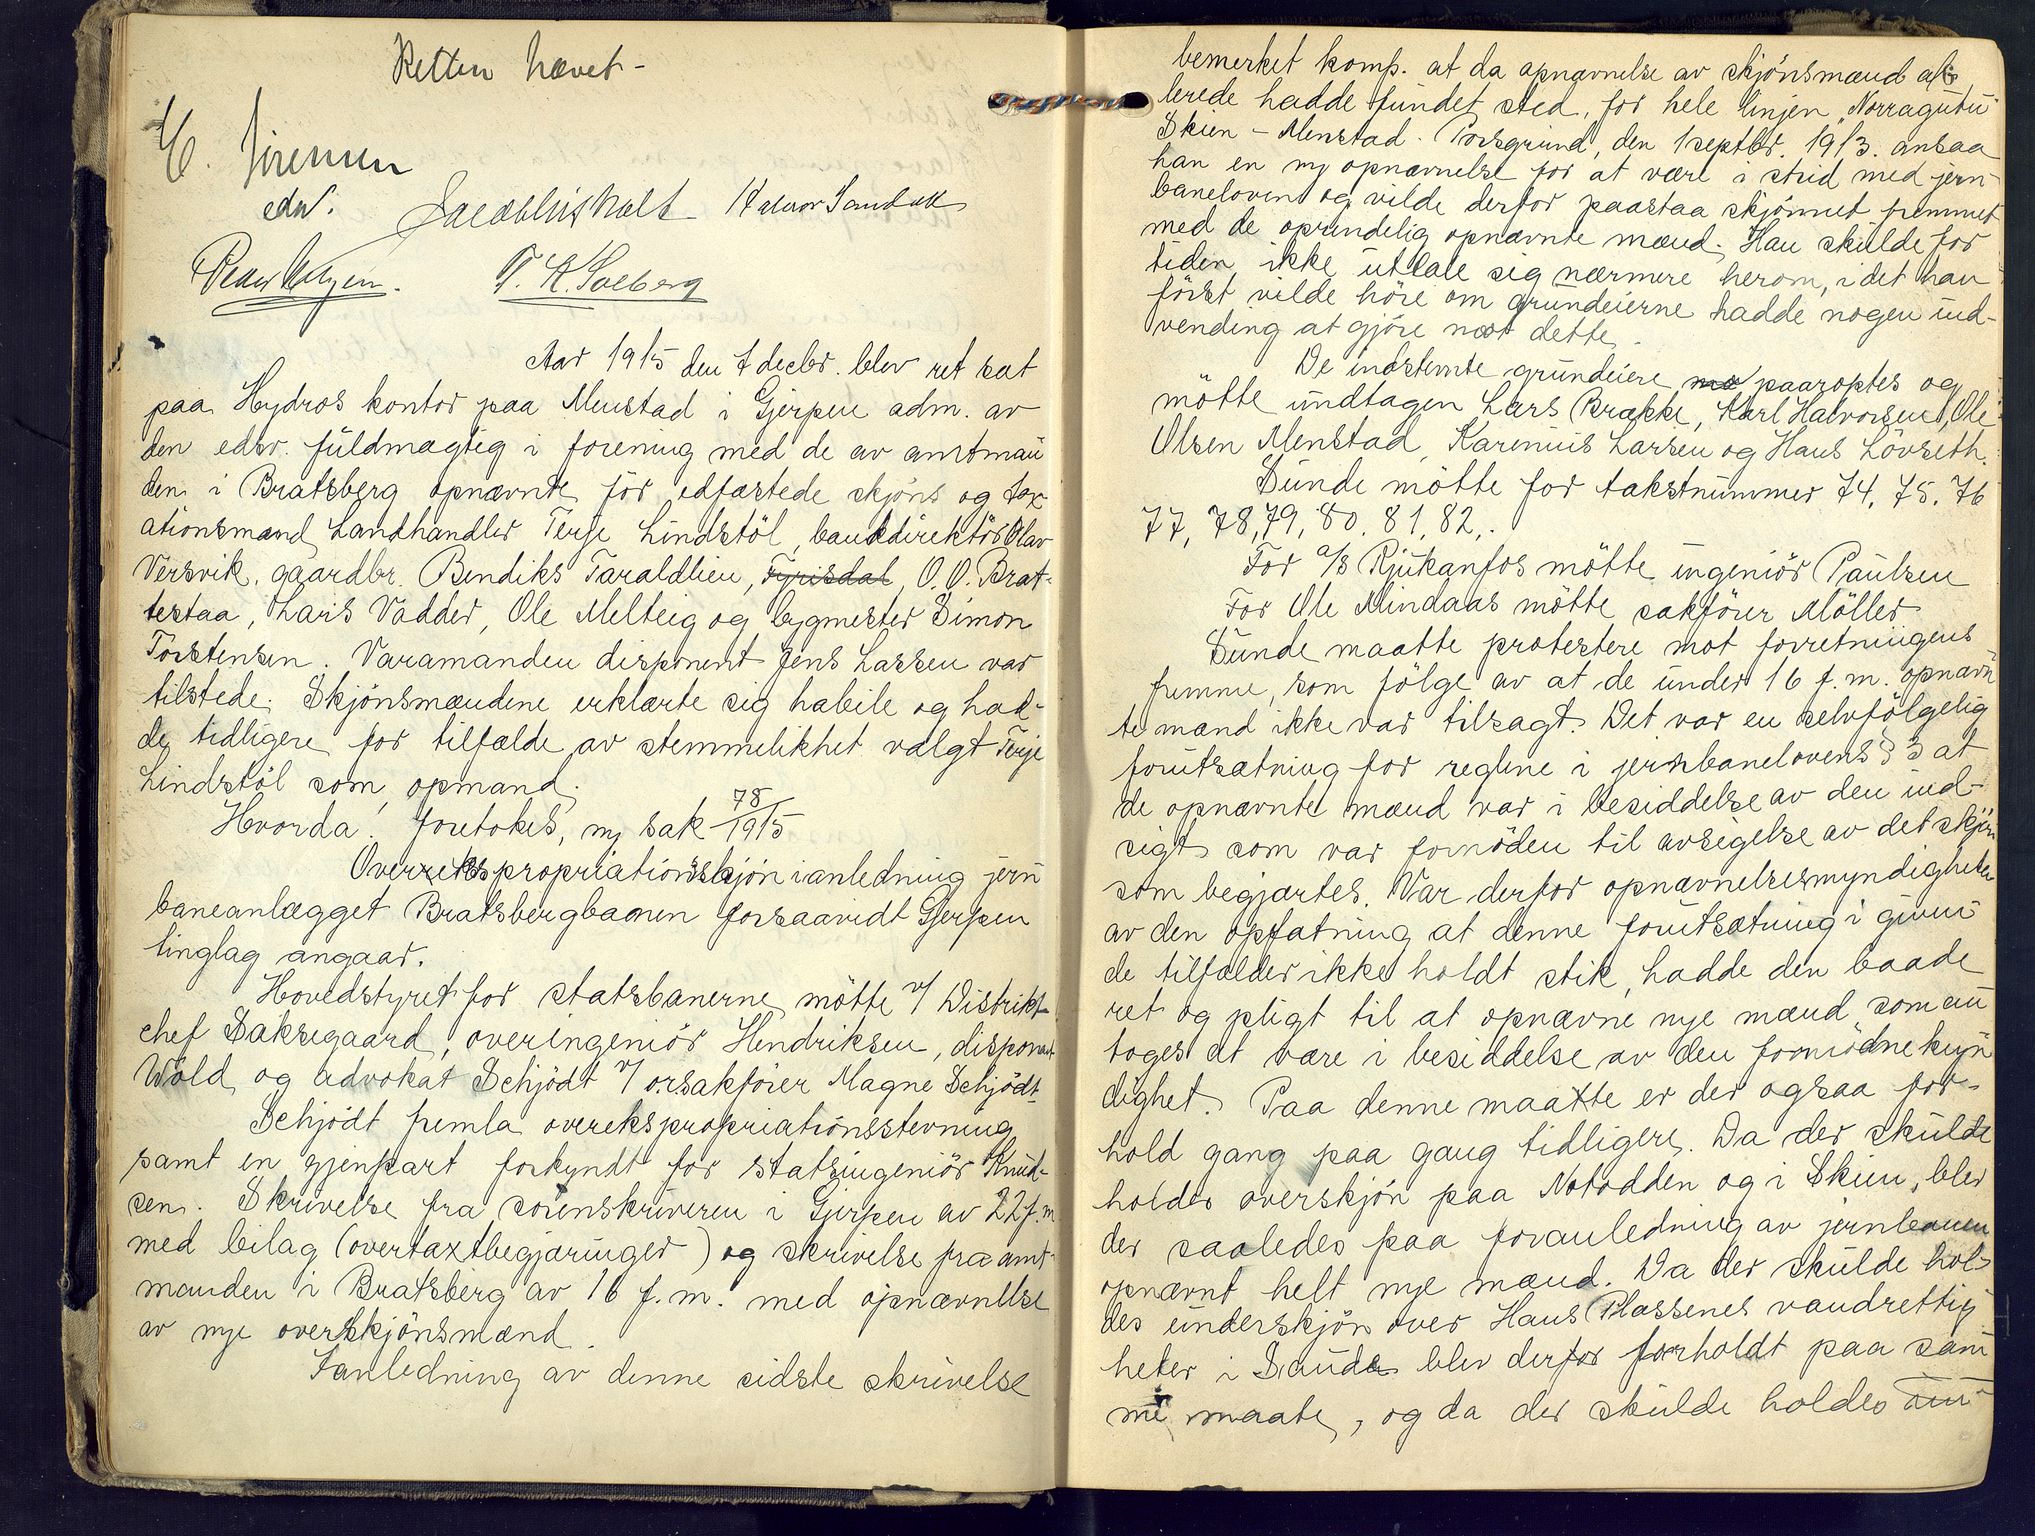 Retten hævet -
edsv.
T. K. Solberg
Aar 1915 den 7 decbr. blev ret sat
paa Hydros kontor paa Menstad i Gjerpen adm. av
den edsv. fuldmægtig i forening med de av amtman
den i Bratsberg opnævnte før edfæstede skjøns og tax-
ationsmænd Landhandler Terje Lindstöl, bankdirektör Olav
Versvik, gaardbr. Bendiks Taraldlien, Fyrisdal, O. O. Brat-
testaa, Lars Vadder, Ole Melteig og bygmester Simon
Torstensen. Varamanden disponent Jens Lassen var
tilstede. Skjönsmændene erklærte sig habile og had-
de tidligere for tilfælde av stemmelikhet valgt Terje
Lindstöl som opmand.
Hvorda: foretokes, ny sak 78/1915
Overekspropriationsskjön i anledning jern
baneanlægget Bratsbergbanen forsaavidt Gjerpen
tinglag angaar.
Hovedstyret for statsbanerne mötte v/ Distrikt-
chef Saksegaard, overingeniör Hendriksen, disponent
Wold og advokat Schjödt v/ o.r.sakförer Magne Schjödt.
Schjödt fremla overekspropriationsstevning
samt en gjenpart forkyndt for statsingeniör Knud-
sen. Skrivelse fra sorenskriveren i Gjerpen av 22 f.m.
med bilag (overtaxtbegjæringer) og skrivelse fra amt-
manden i Bratsberg av 16 f. m. med opnævnelse
av nye overskjönsmænd.
I anledning av denne sidste skrivelse
bemerket komp. at da opnævnelse av skjönsmænd al-
lerede hadde fundet sted, for hele linjen "Nordagutu
Skien - Menstad - Porsgrund, den 1 septbr. 1913. ansaa
han en ny opnævnelse for at være i strid med jern-
baneloven og vilde derfor paastaa skjönnet fremmet
med de oprindelig opnævnte mænd. Han skulde for
tiden ikke uttale sig nærmere herom, idet han
först vilde höre om grundeierne hadde nogen ind-
vending at gjöre mot dette.
De indstemte grundeiere mø paaroptes og
mötte undtagen Lars Brække, Karl Halvorsen, Ole
Olsen Menstad, Karenius Larsen og Hans Lövseth.
Sunde mötte for takstnummer 74, 75, 76
77, 78, 79, 80, 81, 82,.
For A/S Rjukanfos mötte ingeniör Paulsen
For Ole Mindaas mötte sakförer Möller
Sunde maatte protestere mot forretningens
fremme, som fölge av at de under 16 f. m. opnævn
te mænd ikke var tilsagt. Det var en selvfölgelig
forutsætning for reglene i jernbanelovens § 3 at
de opnævnte mænd var i besiddelse av den ind-
sigt som var fornöden til avsigelse av det skjön
som begjærtes. Var derfor opnævnelsesmyndigheten
av den opfatning at denne forutsætning i given-
de tilfælder ikke holdt stik, hadde den baade
ret og pligt til at opnævne nye mænd som an
toges at være i besiddelse av den fornödne kyn
dighet. Paa denne maatte er der ogsaa for-
hold gang paa gang tidligere. Da der skulde
holdes overskjön paa Notodden og i Skien, blev
der saaledes paa foranledning av jernbanen
opnævnt helt nye mænd. Da der skulde hol-
des underskjön over Hans Plassenes vandrettig
heter i Saude blev derfor forholdt paa sam
me maate, og da der skulde holdes un-